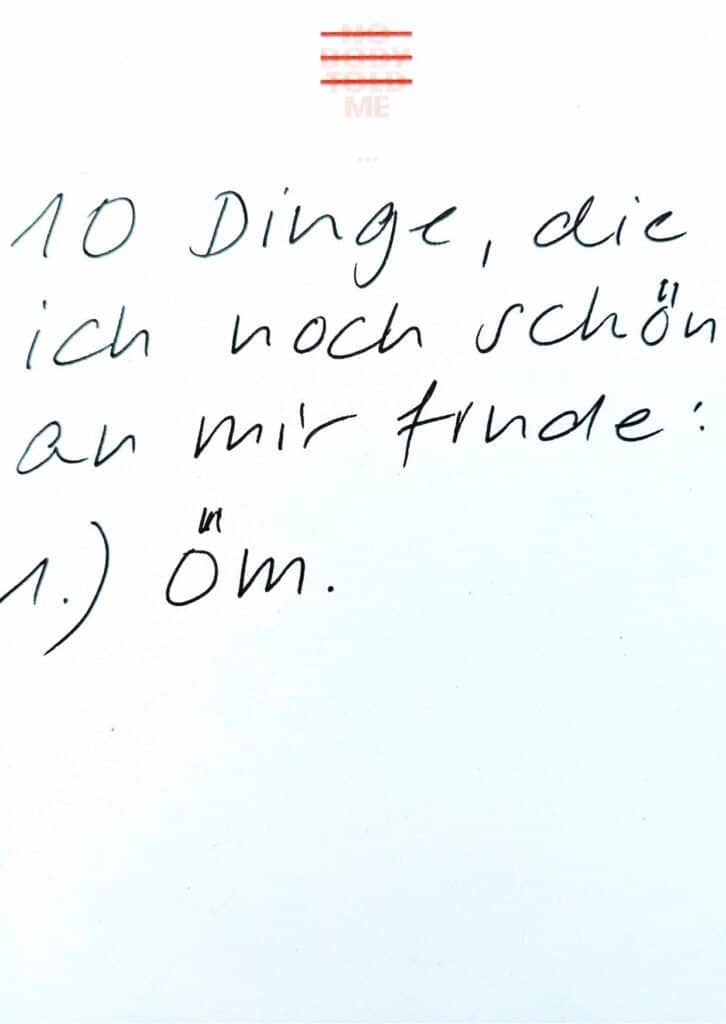 NO
BODY
TOLD
ME
...
10 Dinge, die
ich noch schön
an mir finde:
1.) Öm.